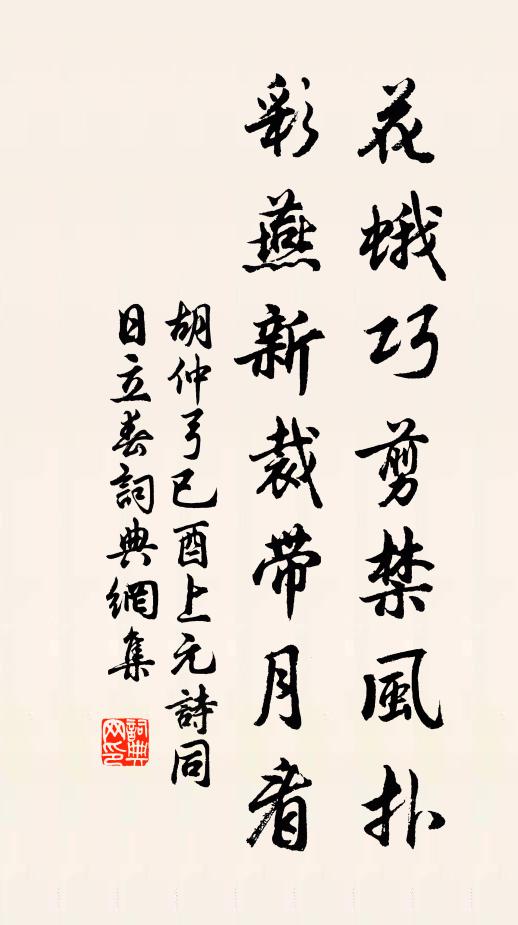 花蛾巧剪禁風扑
彩燕新裁带月看
胡仲弓已酉上元詩同
日立春詞典網集
詞典网印